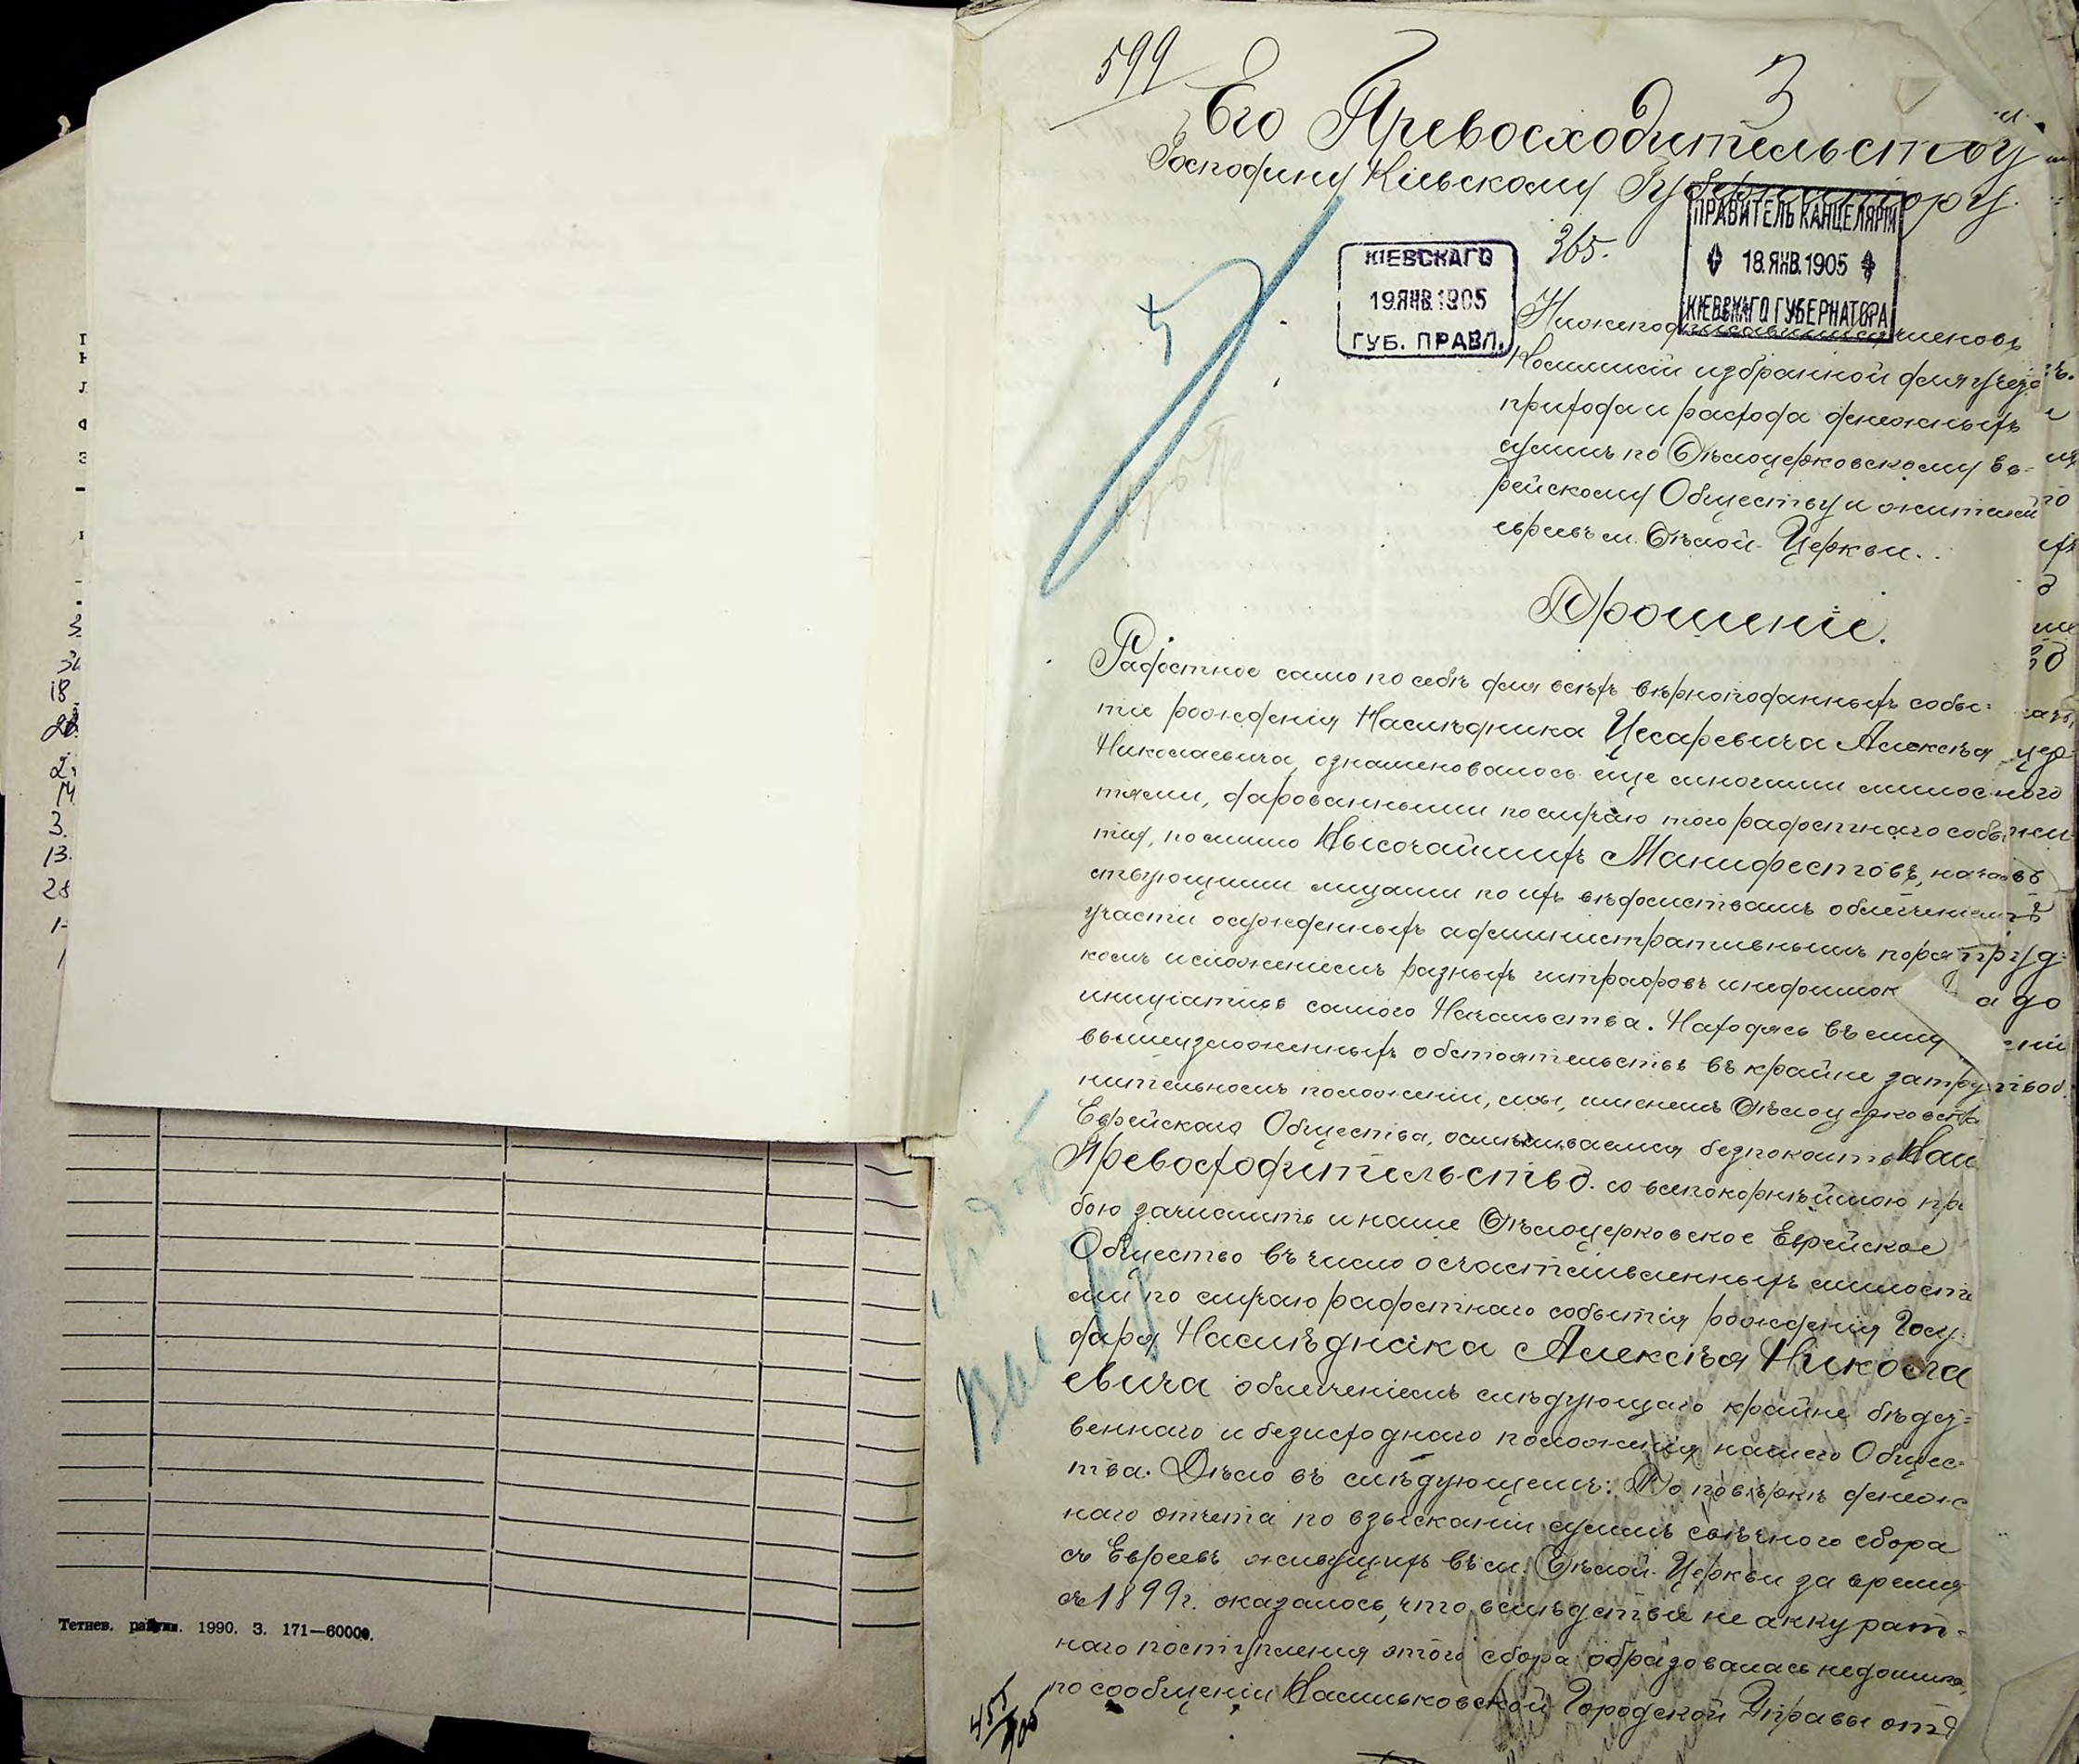 599
3
Его Превосходительству
Господину Кіевскому Губернатору.
365.
ПРАВИТЕЛЬ КАНЦЕЛЯРІИ
18.ЯНВ.1905
КІЕВСКАГО ГУБЕРНАТОРА
КІЕВСКАГО
19.ЯНВ.1905
ГУБ. ПРАВЛ.
Нижеподписавшихся членовъ
Коммисіи избранной для учета
прихода и расхода денежныхъ
суммъ по Бѣлоцерковскому Ев-
рейскому Обществу и жителей
евреевъ м. Бѣлой-Церкви.
Прошеніе.
Радостное само по себѣ для всѣхъ вѣрноподанныхъ собы-
тіе рожденія Наслѣдника Цесаревича Алексѣя
Николаевича, ознаменовалось еще многими милос-
тями, дарованными по случаю того радостнаго собы
тія, помимо Высочайшихъ Манифестовъ, началь
ствующими лицами по ихъ вѣдомствамъ облегченіемъ
участи осужденныхъ административнымъ поряд
комъ и сложеніемъ разныхъ штрафовъ и недоимок
иниціативѣ самого Начальства. Находясь въ силу
вышеизложенныхъ обстоятельствъ въ крайне затруд
нительномъ положеніи, мы, именемъ Бѣлоцерковск
Еврейскаго Общества, осмѣливаемся безпокоить Ваш
Превосходительство со всепокорнѣйшою про
бою зачислить и наше Бѣлоцерковское Еврейское
Общество въ число осчастливленныхъ милостя
ми по случаю радостнаго событія рожденія Госу-
даря Наслѣдника Алексѣя Никола
евича облегченіемъ слѣдующаго крайне бѣдст-
веннаго и безисходнаго положенія нашего Общес-
тва. Дѣло въ слѣдующемъ: По повѣркѣ денеж
наго отчета по взысканіи суммъ свѣчного сбора
съ Евреевъ живущихъ въ м. Бѣлой-Церкви за время
съ 1899 г. оказалось, что вслѣдствіе не аккурат-
наго поступленія этого сбора образовалась недоимка,
по сообщеніи Васильковской Городской Управы отъ
455/905
18
3.
13.
28
Тетиев. 1990. З. 171—60000.